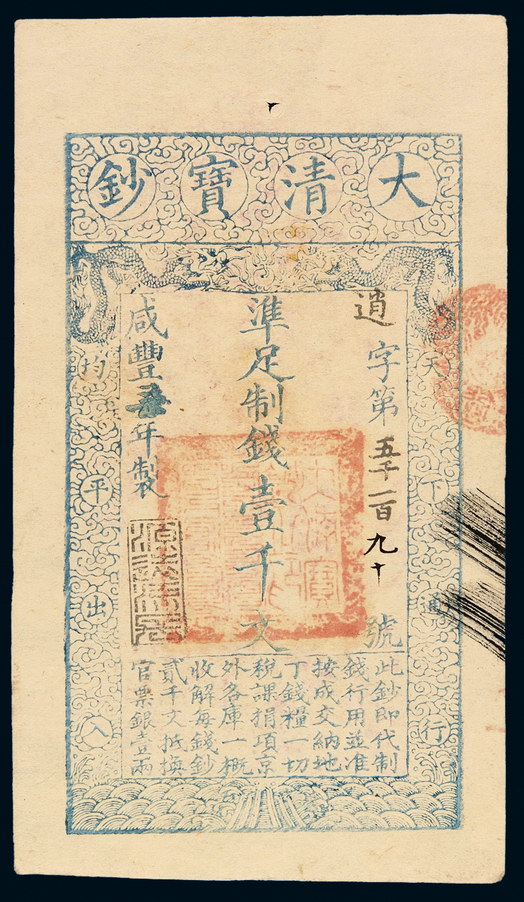 大清寶鈔
天下通行
均平出入
字第五千一百九十號
準足制錢壹千文
咸豐年製
此鈔即代制
錢行用並准
按成交納地
丁錢糧一切
稅課捐項京
外各庫一概
收解每錢鈔
貳千文抵換
官票銀壹兩